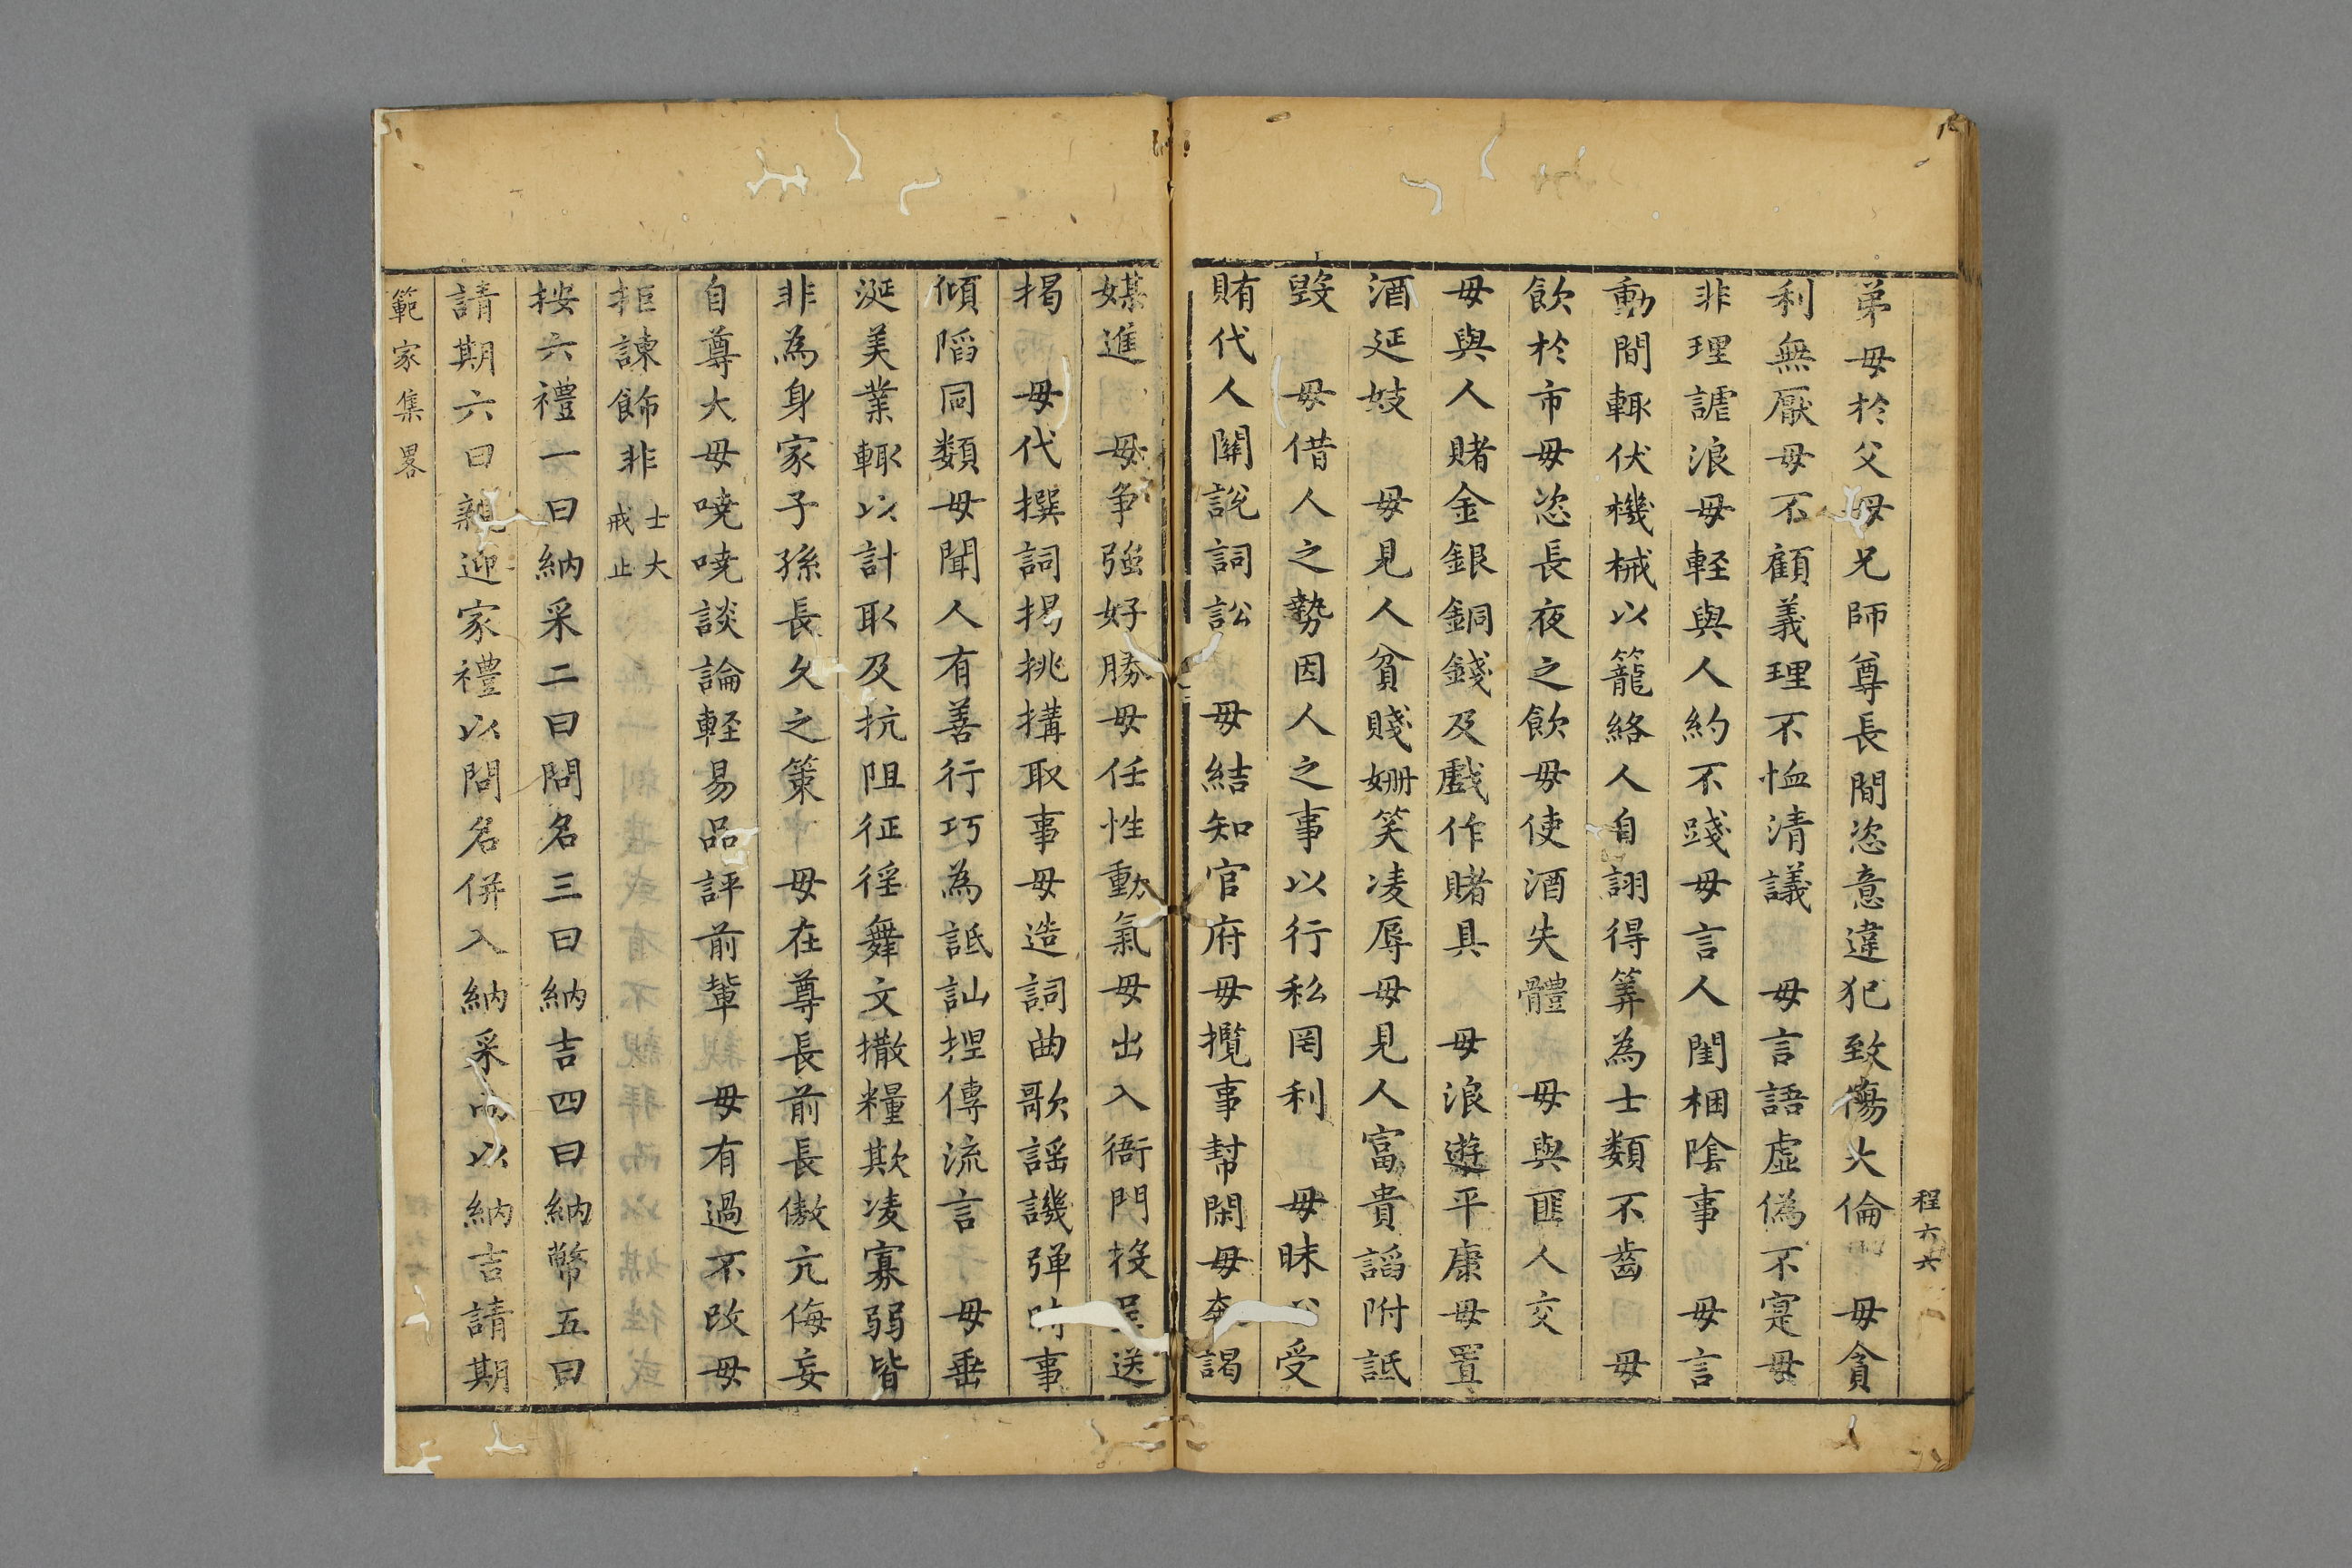 程六六
弟毋於父母兄師尊長間恣意違犯致傷大倫 毋貪
利無厭毋不顧義理不恤清議 毋言語虛偽不寔毋
非理謔浪毋輕與人約不踐毋言人閨梱陰事 毋言
動間輙伏機械以籠絡人自詡得筭為士類不齒 毋
飲於市毋恣長夜之飲毋使酒失體 毋與匪人交
毋與人賭金銀銅錢及戲作賭具 毋浪遊平康毋置
酒延妓 毋見人貧賤姍笑凌辱毋見人富貴謟附詆
毀 毋借人之勢因人之事以行私罔利 毋昧 受
賄代人關說詞訟 毋結知官府毋攬事幇閑毋奔謁
媒進 毋争強好勝毋任性動氣毋出入衙門投呈送
掲 毋代撰詞掲挑搆取事毋造詞曲歌謡譏弹時事
傾䧟同類毋聞人有善行巧為詆訕揑傳流言 毋垂
涎美業輙以計取及抗阻征徭舞文撒糧欺凌寡弱皆
非為身家子孫長久之策 毋在尊長前長傲亢侮妄
自尊大毋嘵嘵談論輕易品評前輩 毋有過不改毋
拒諫飾非士大戒止
按六禮一曰納采二曰問名三曰納吉四曰納幣五曰
請期六曰親迎家禮以問名併入納采而以納吉請期
範家集畧